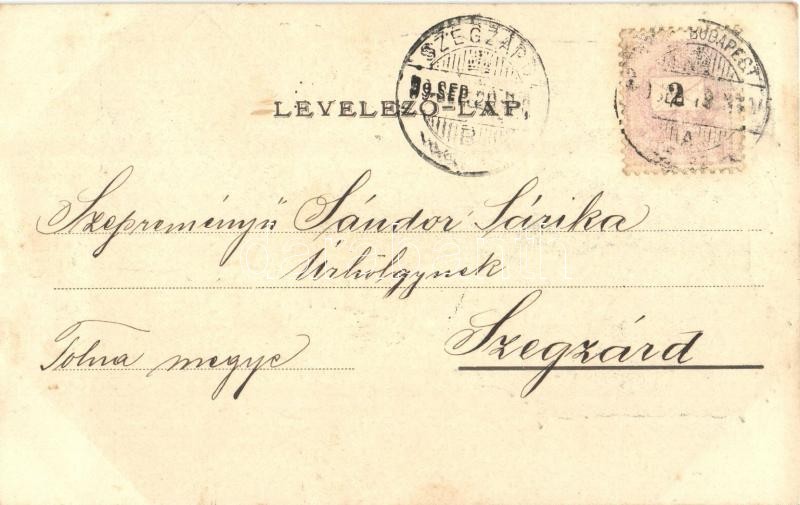 SZEGZÁRD
BUDAPEST
99 SEP. 20
2
LEVELEZŐ-LAP.
B
A
Szepreményű Sándor Sárika
Úrhölgynek
Szegzárd
Tolna megye